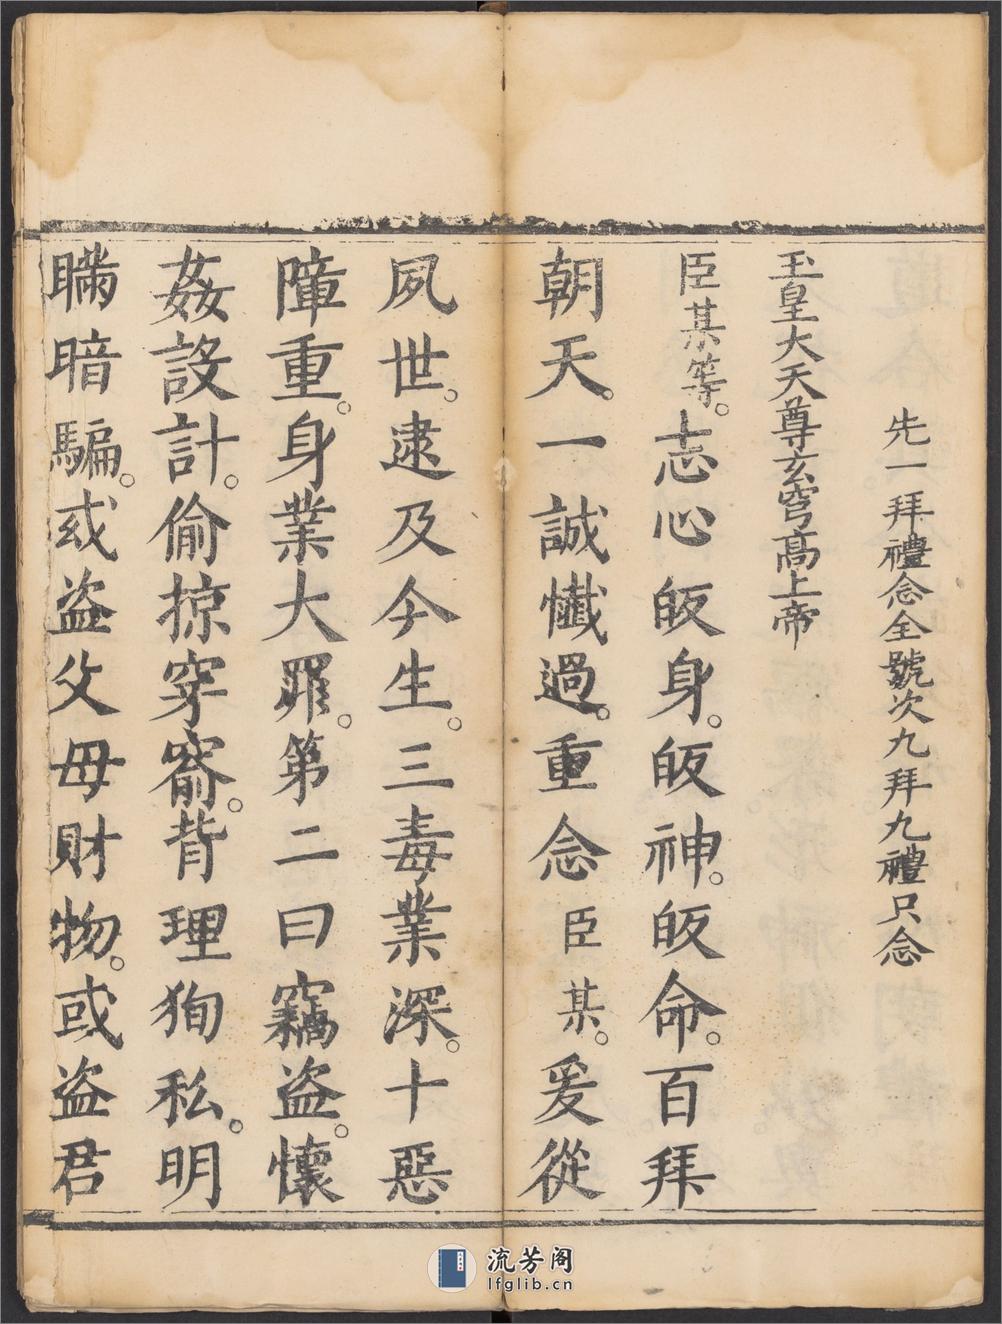 先一拜禮念全號次九拜九禮只念
玉皇大天尊玄穹高上帝
臣某等。志心皈身。皈神。皈命。百拜
朝天。一誠懺過。重念臣某。爰從
夙世。逮及今生。三毒業深。十惡
障重。身業大罪。第二曰竊盜。懷
姦設計。偷掠穿窬。背理徇私。明
瞞暗騙。或盜父母財物。或盜君
流芳阁
lfglib.cn